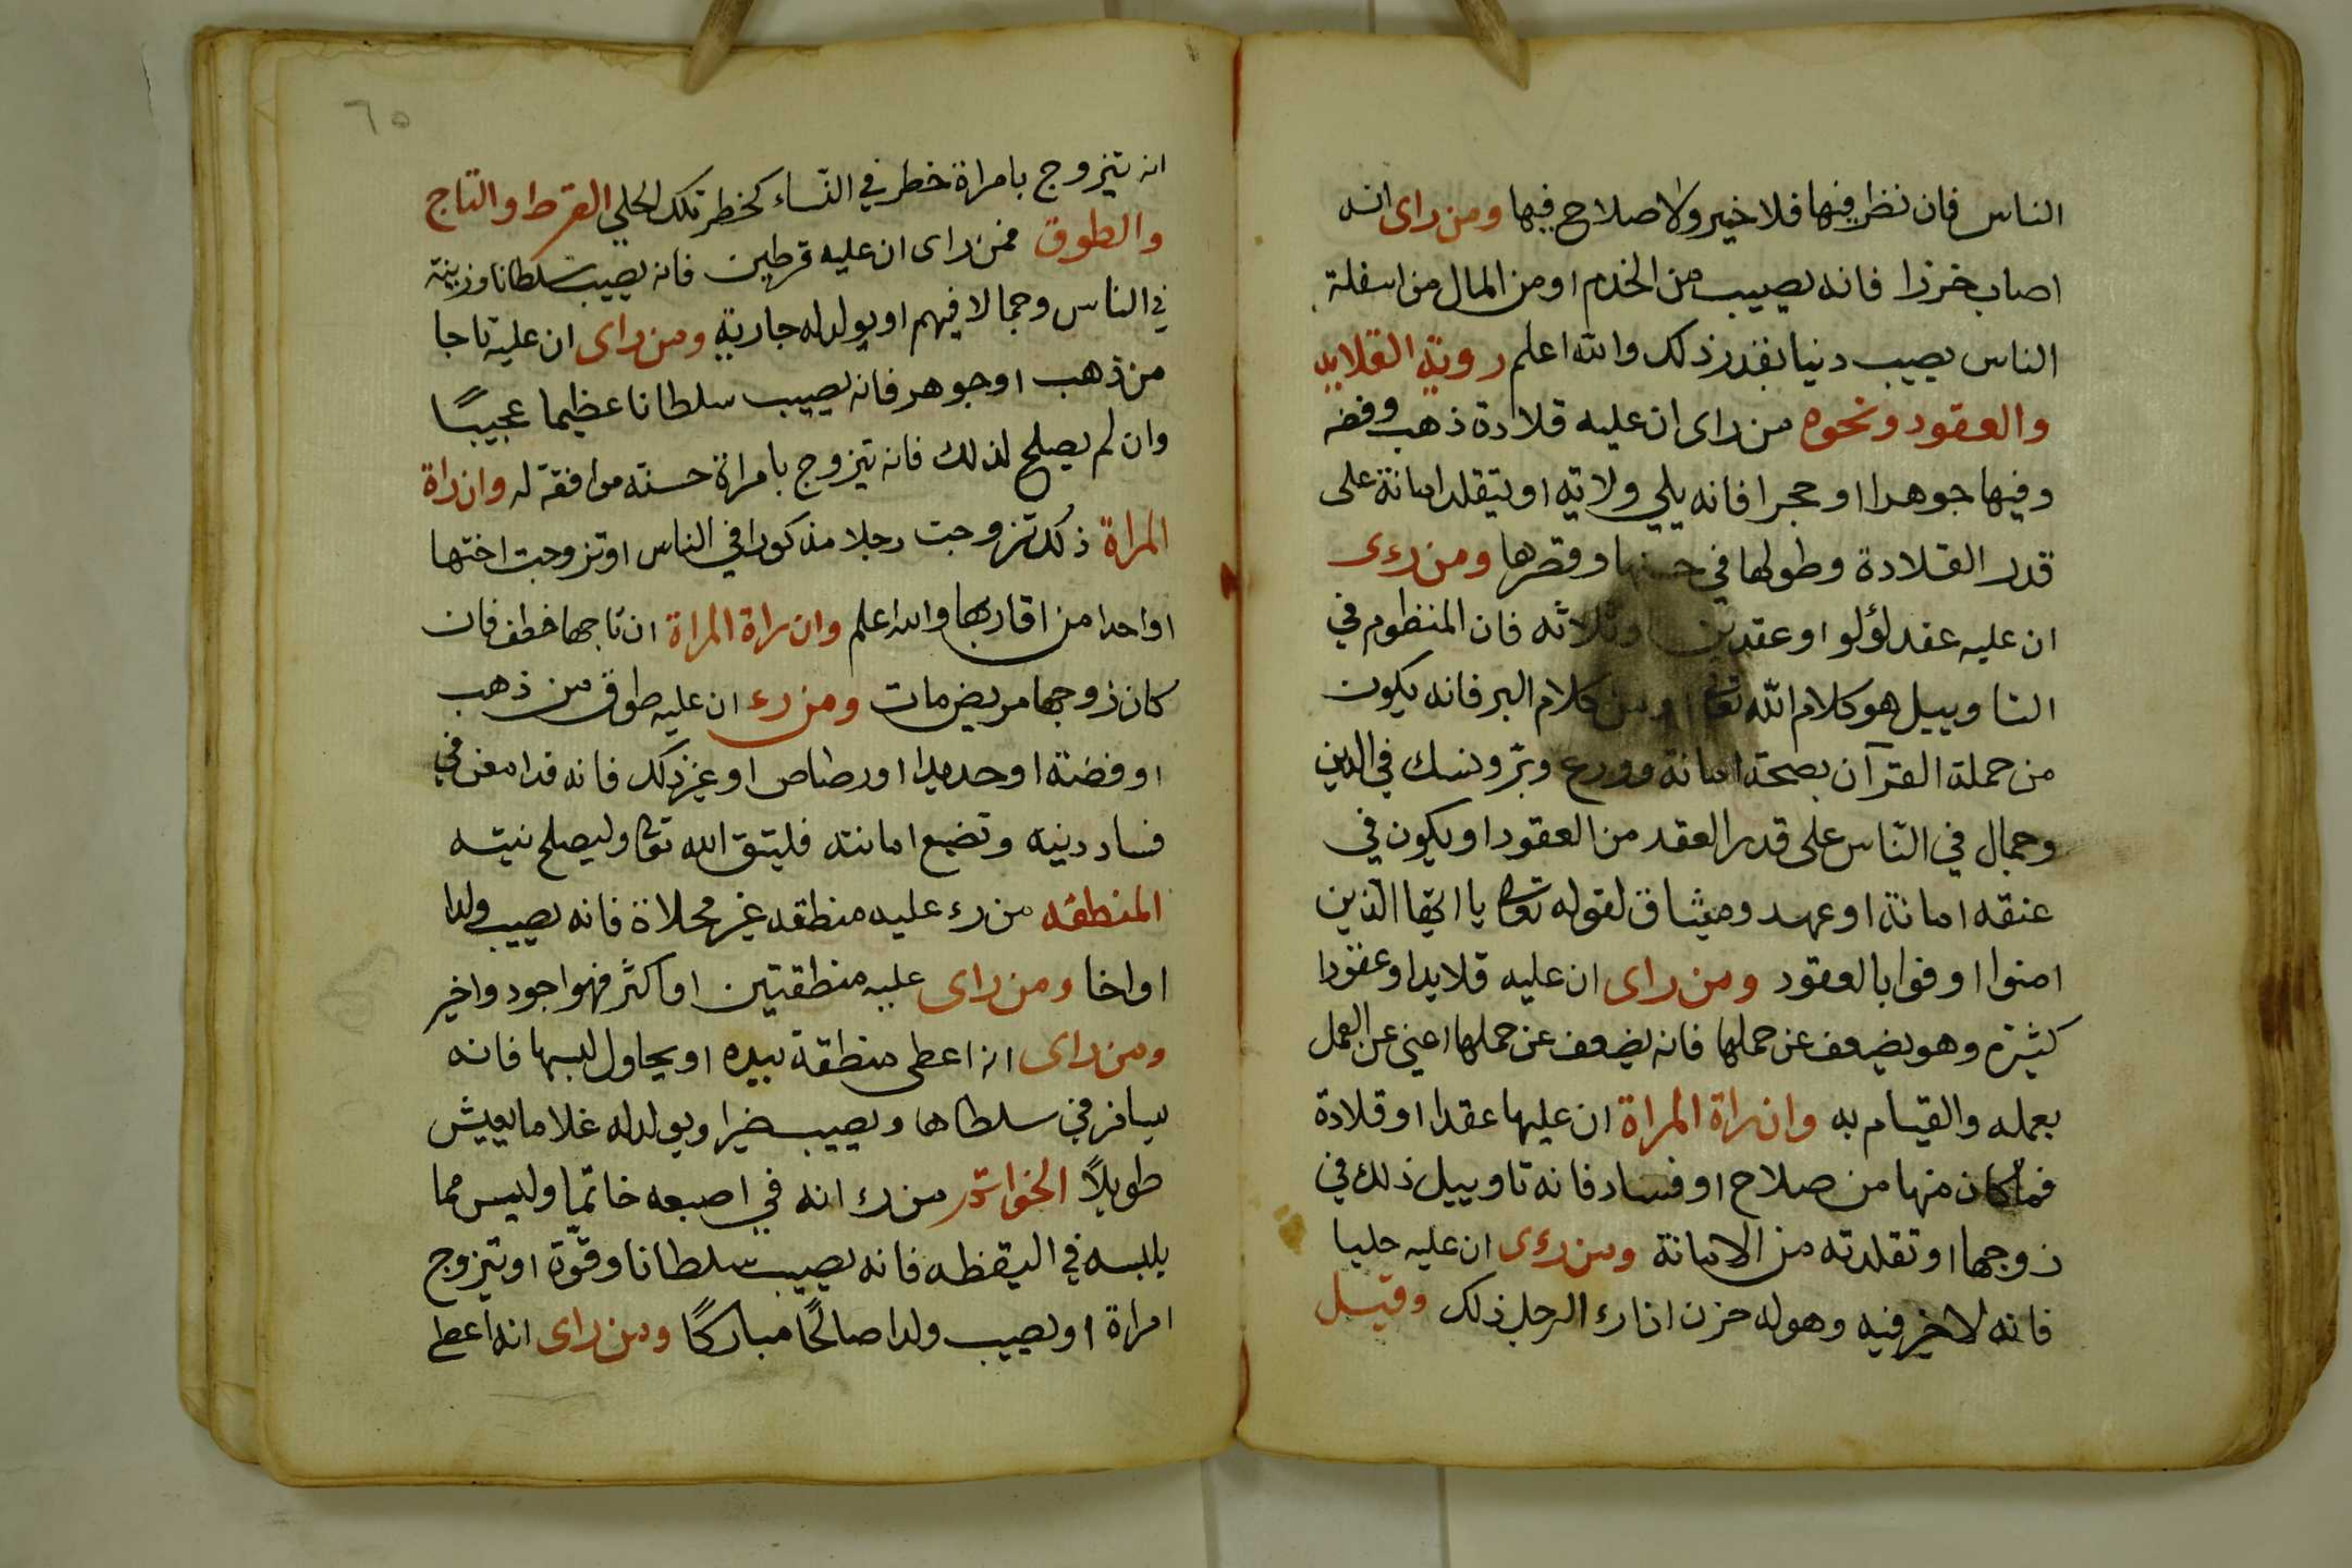 الناس فان نظر فيها فلا خير ولا صلاح فيها ومن راى انه
اصاب خرزا فانه يصيب من الخدم او من المال من اسفلة
الناس يصيب دنيا بقدر ذلك والله اعلم روية القلايد
والعقود ونحوه من راى ان عليه قلادة ذهب وفضه
وفيها جوهرا او حجرا فانه يلي ولاية او يتقلد امانة على
قدر القلادة وطولها في حسنها وقصرها ومن رءى
ان عليه عقد لؤلو او عقدين وثلاثه فان المنظوم في
التاوييل هو كلام الله تعا او من كلام البر فانه يكون
من حملة القرآن بصحة امانة وورع وبرّ ونسك في الدين
وجمال في النّاس على قدر العقد من العقود او يكون في
عنقه امانة او عهد وميثاق لقوله تعا يا ايّها الّذين
امنوا اوفوا بالعقود ومن راى ان عليه قلايدا وعقودا
كثيرة وهو يضعف عن حملها فانه يضعف عن حملها اعني عن العمل
بعمله والقيام به وان راة المراة ان عليها عقدا او قلادة
فما كان منها من صلاح او فساد فانه تاوييل ذلك في
زوجها او تقلدته من الامانة ومن رءى ان عليه حليا
فانه لا خير فيه وهو له حزن اذا رء الرجل ذلك وقيل
٦٥
انه يتزوج بامراة خطر في النّساء كخطر تلك الحلي القرط والتاج
والطوق فمن راى ان عليه قرطين فانه يصيب سلطانا وزينة
في الناس وجمالا فيهم او يولد له جارية ومن راى ان عليه تاجا
من ذهب او جوهر فانه يصيب سلطانا عظيما عجيبًا
وان لم يصلح لذلك فانه يتزوج بامراة حسنة موافقة له وان راة
المراة ذلك تزوجت رجلا مذكورا في الناس او تزوجت اختها
او احدا من اقاربها والله اعلم وان راة المراة ان تاجها خطف فان
كان زوجها مريض مات ومن رء ان عليه طوق من ذهب
او وفضة او حديدا او رصاص او غير ذلك فانه قد امعن في
فساد دينه وتضيع امانته فليتق الله تعا وليصلح نيته
المنطقه من رء عليه منطقه غير محلاة فانه يصيب ولدا
او اخا ومن راى عليه منطقتين او اكثر فهو اجود واخير
ومن راى انه اعطى منطقة بيده او يحاول لبسها فانه
يسافر في سلطاها ويصيب خيرا ويولد له غلاما يعيش
طويلاً الخواتم من رء انه في اصبعه خاتمًا وليس مما
يلبسه في اليقظه فانه يصيب سلطانا وقوّة او يتزوج
امراة او يصيب ولدا صالحًا مباركًا ومن راى انه اعطى